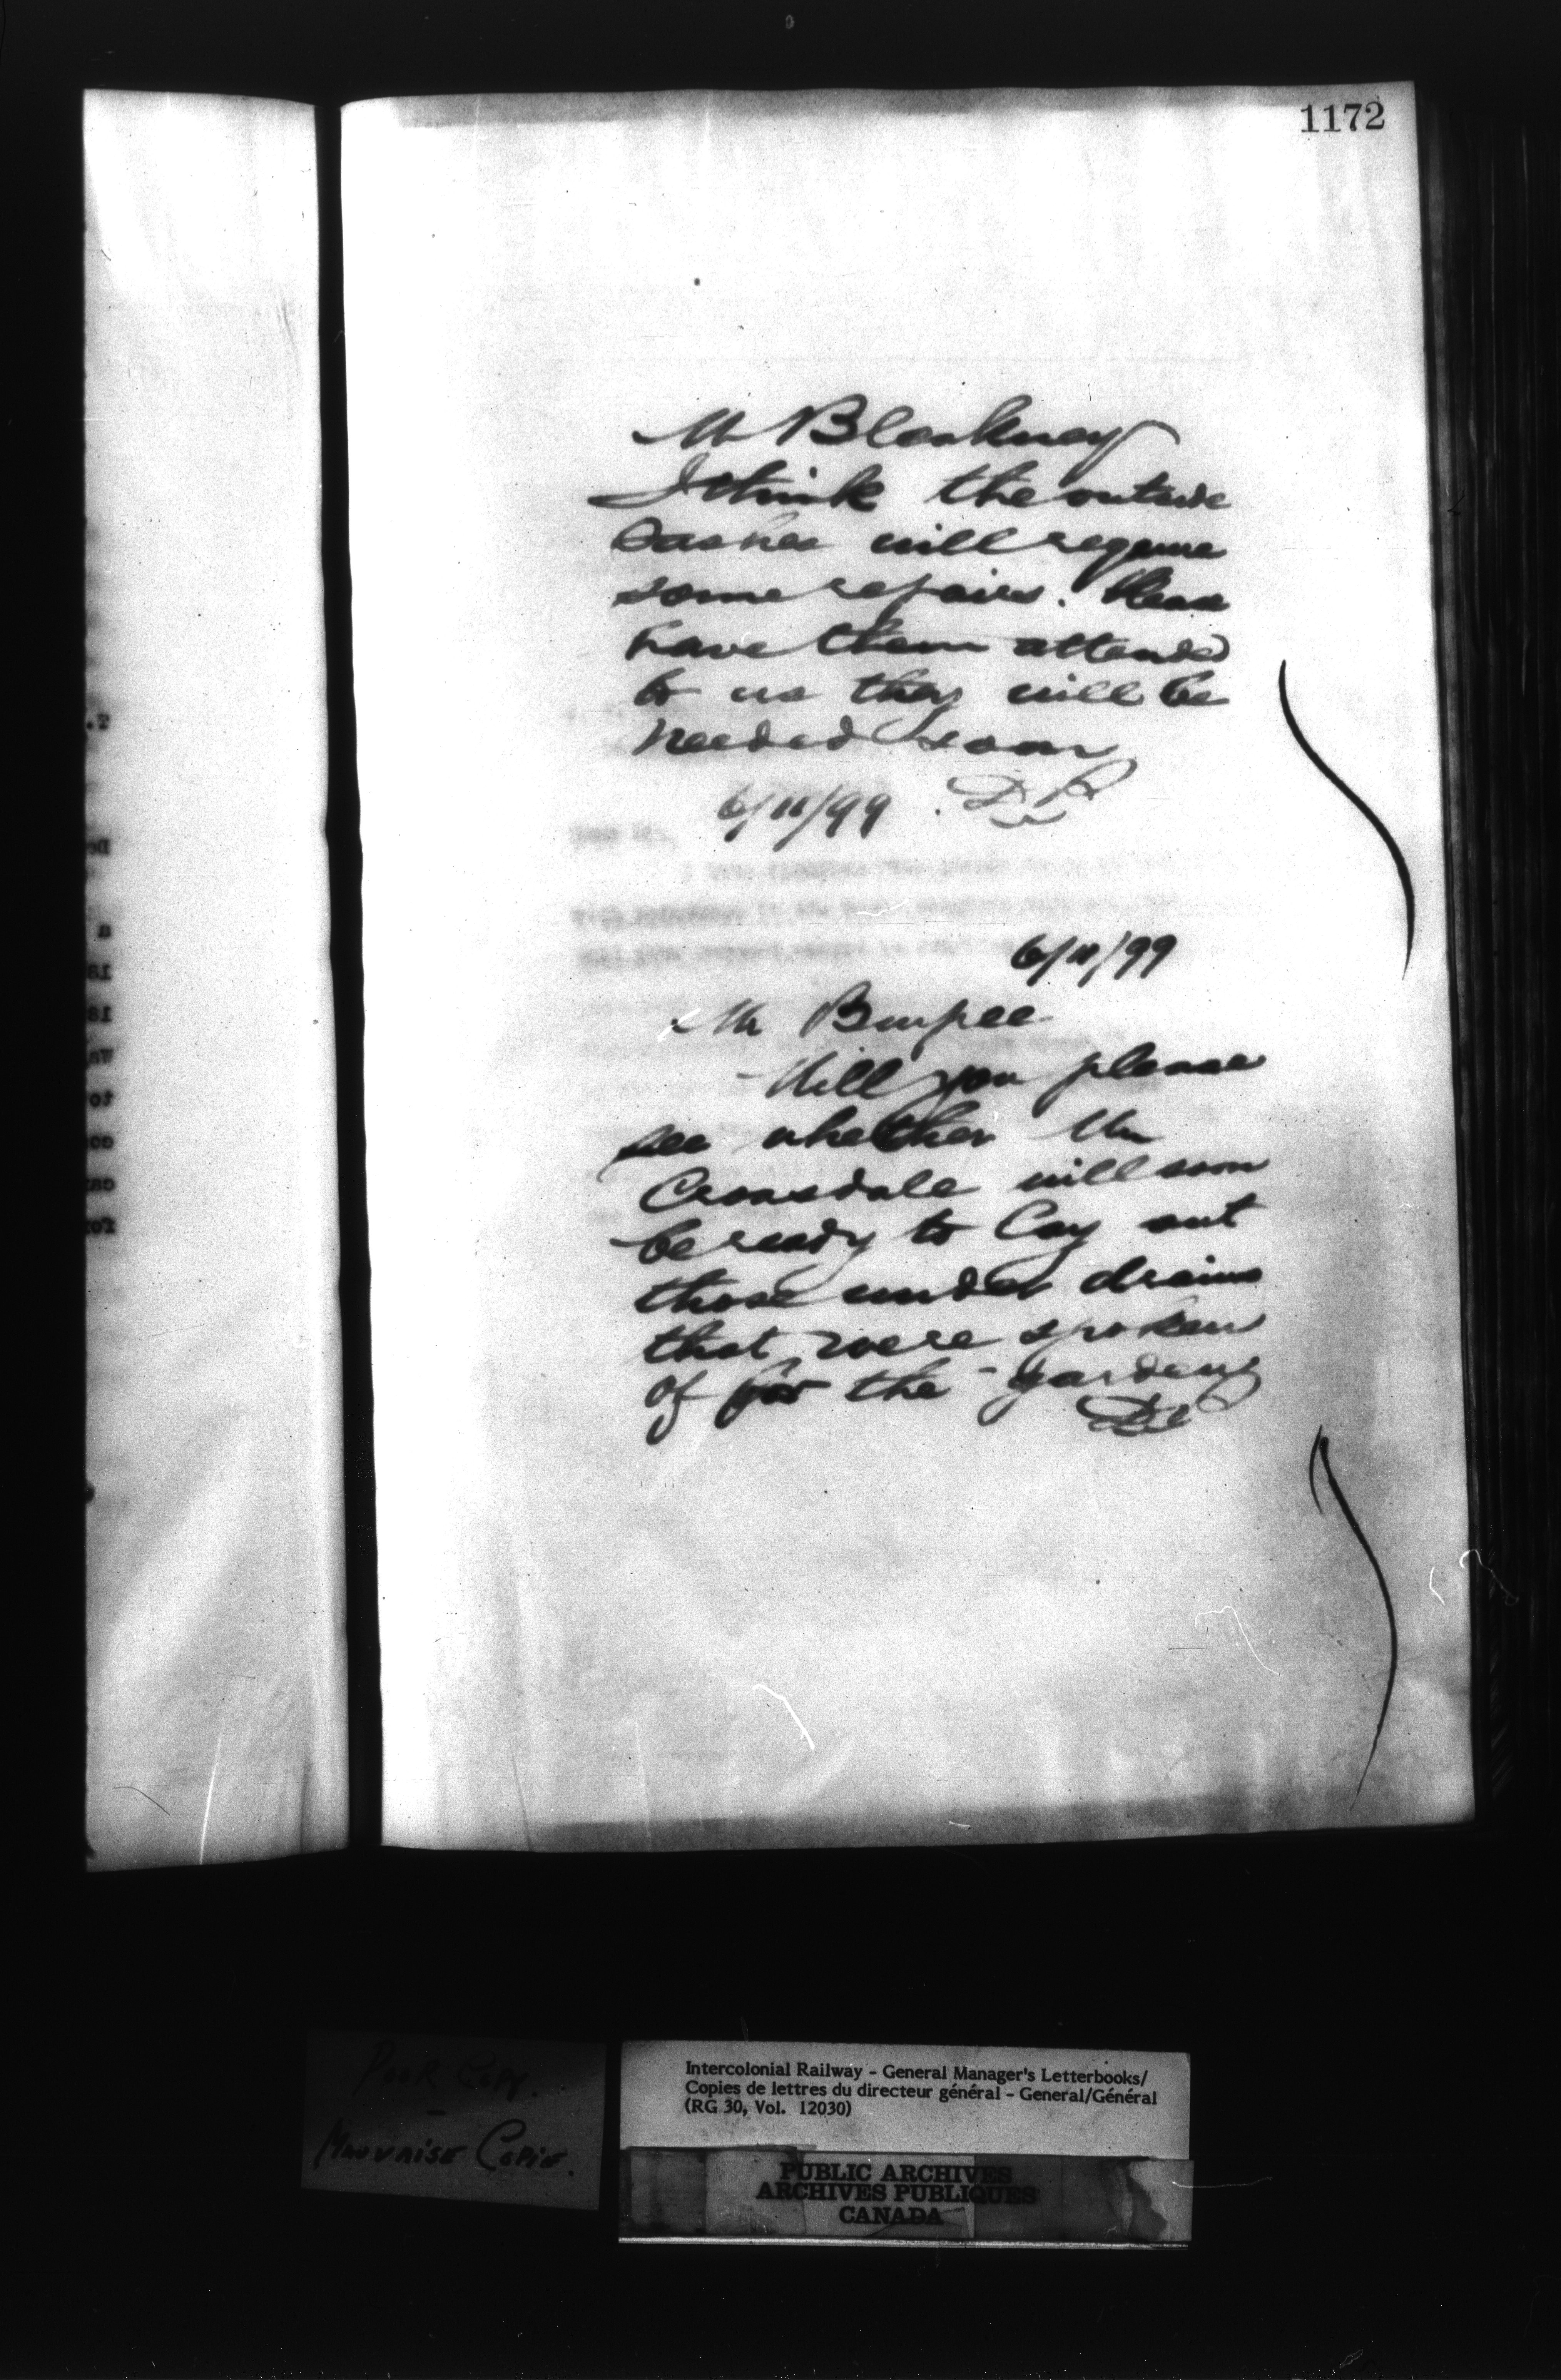 1172
Mr Bleakney
I think the outside
Sashes will require
some repairs. Please
have them attended
to as they will be
needed soon
6/11/99
6/11/99
Mr Burpee
Will you please
see whether Mr
Croasdale will soon
be ready to lay out
those under drains
that were spoken
of for the gardens
POOR COPY.
MAUVAISE COPIE.
Intercolonial Railway - General Manager's Letterbooks/
Copies de lettres du directeur général - General/Général
(RG 30, Vol. 12030)
PUBLIC ARCHIVES
ARCHIVES PUBLIQUES
CANADA